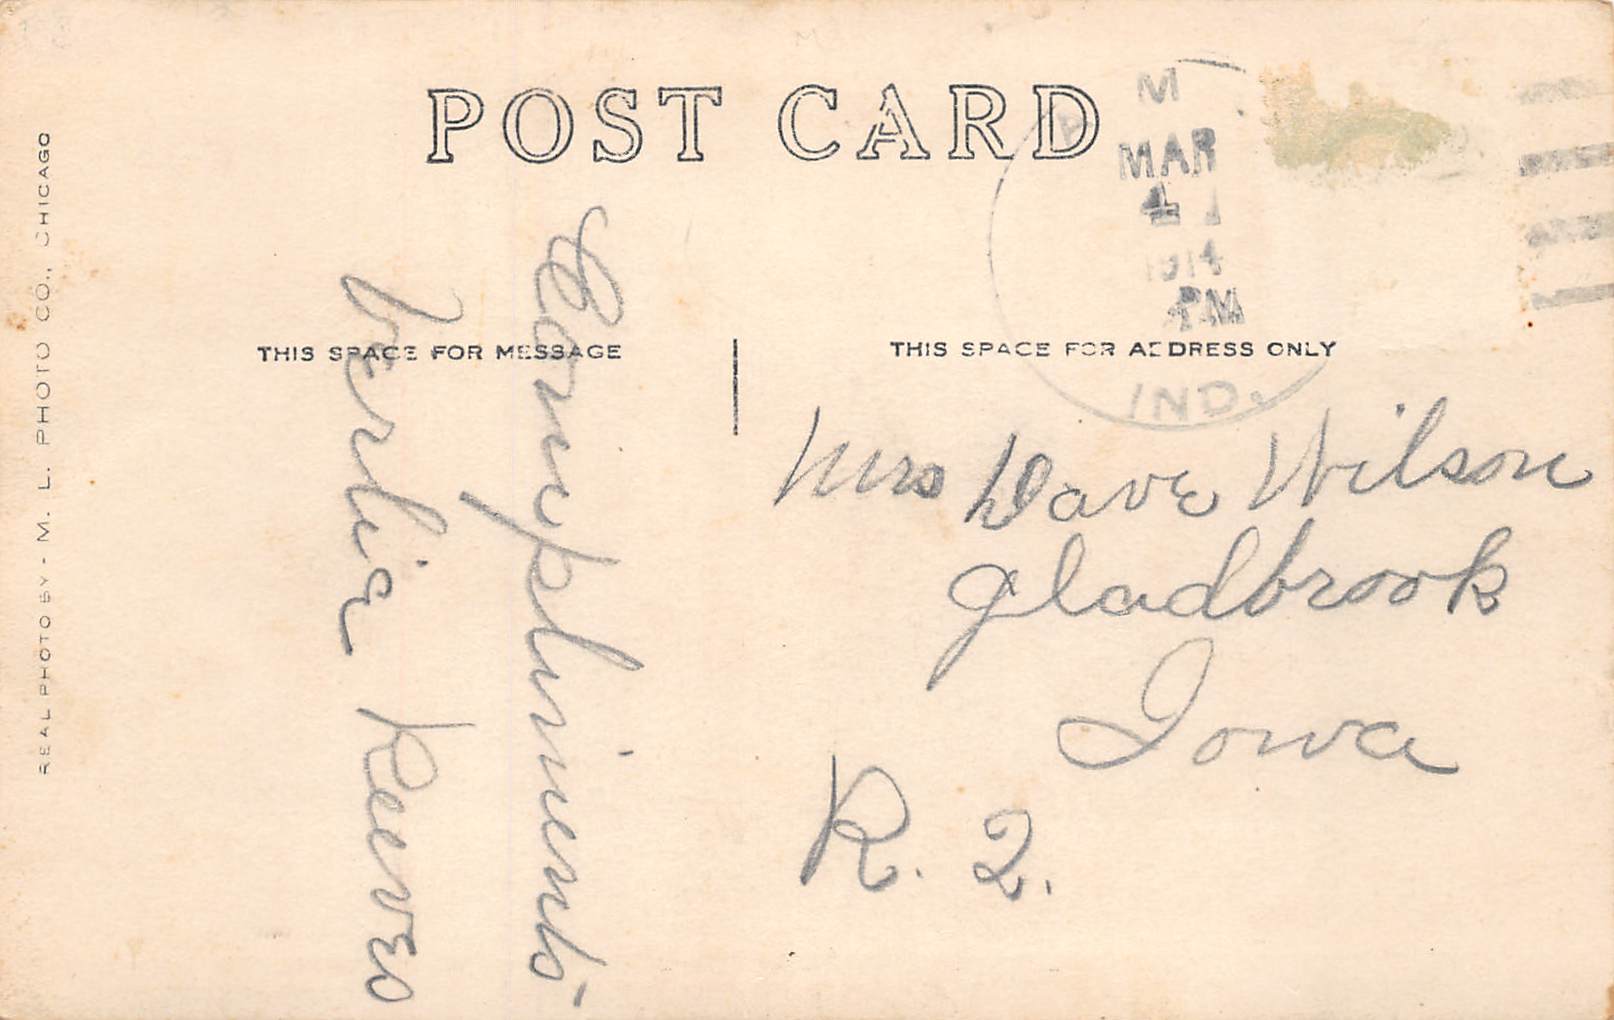 POST CARD
M
MAR
4
1914
PM
IND.
THIS SPACE FOR MESSAGE
THIS SPACE FOR ADDRESS ONLY
REAL PHOTO BY - M. L. PHOTO CO., CHICAGO
Compliments
Verlia Reeves
Mrs Dave Wilson
Gladbrook
Iowa
R. 2.